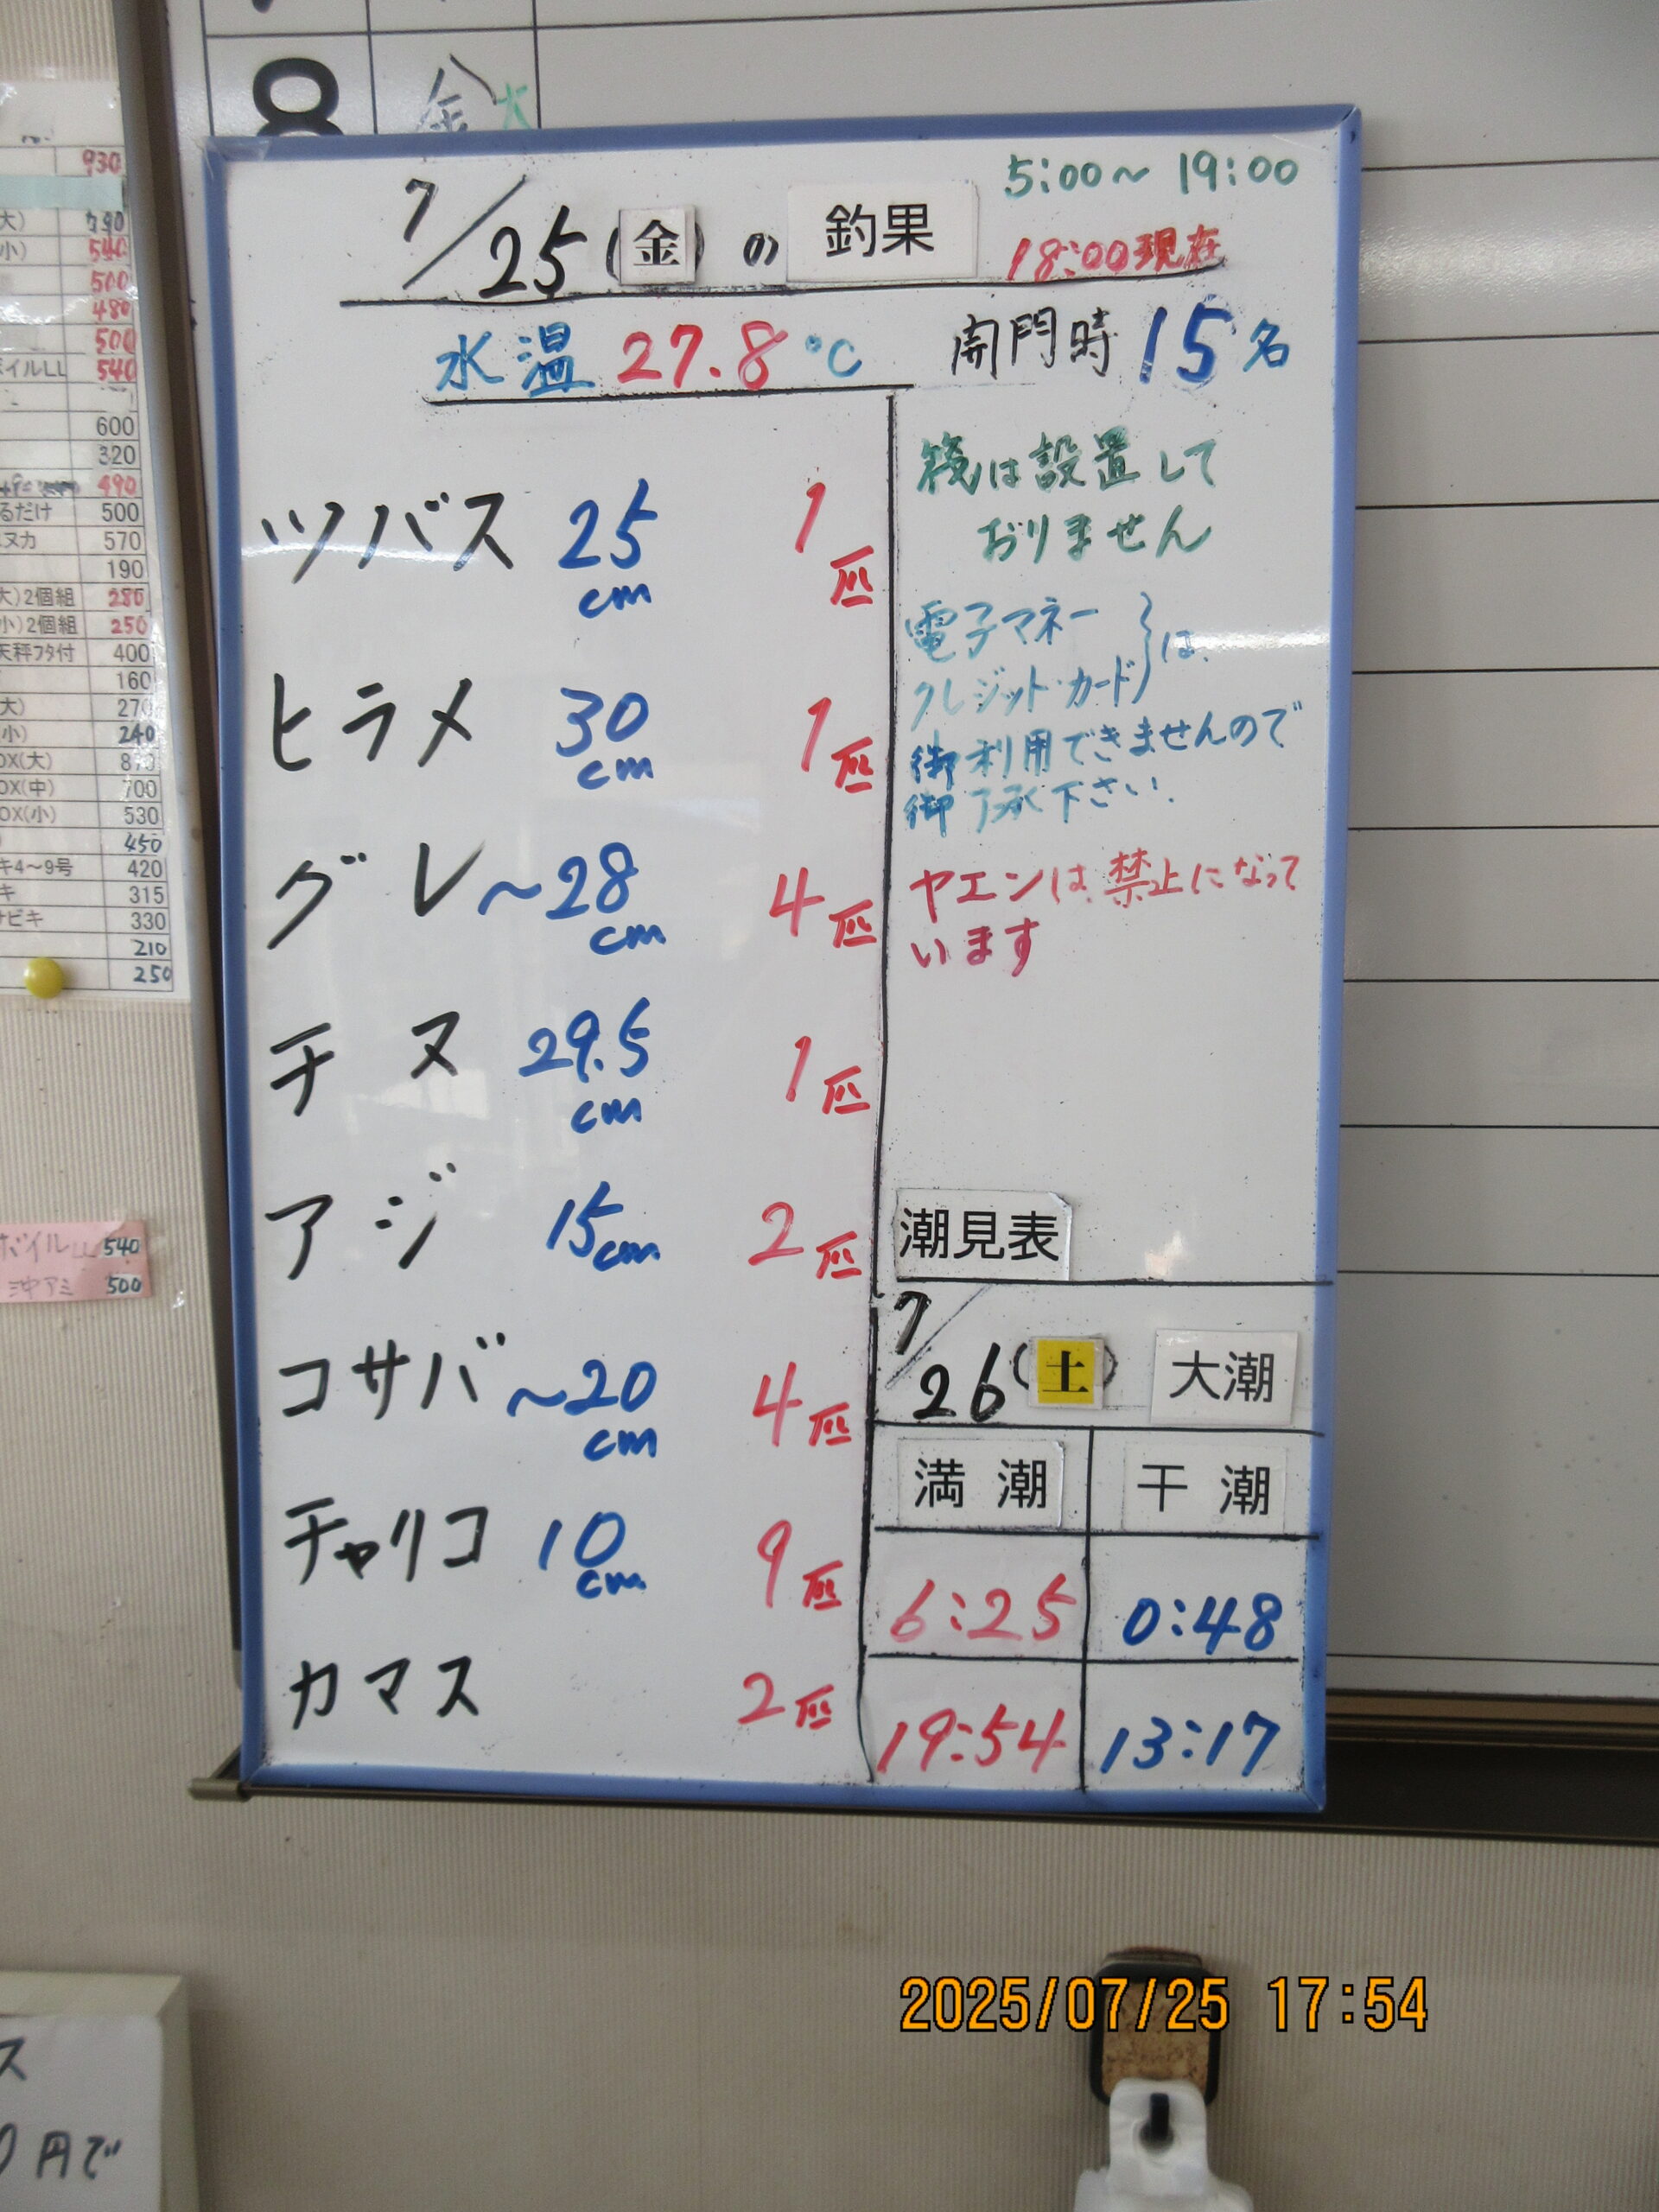 8
金
大
5:00～19:00
7/25(金)の 釣果
18:00現在
水温 27.8℃ 開門時 15名
ツバス 25cm 1匹
ヒラメ 30cm 1匹
グレ ～28cm 4匹
チヌ 29.5cm 1匹
アジ 15cm 2匹
コサバ ～20cm 4匹
チャリコ 10cm 9匹
カマス 2匹
筏は設置して
おりません
電子マネー
クレジット・カード}は、
御利用できませんので
御了承下さい.
ヤエンは禁止になって
います
潮見表
7/26(土) 大潮
満潮 干潮
6:25 0:48
19:54 13:17
930
大)
小) 540
500
480
500
ボイルLL 540
600
320
490
るだけ 500
ヌカ 570
190
大)2個組 280
小)2個組 250
天秤フタ付 400
160
大) 270
小) 240
OX(大)
OX(中) 700
OX(小) 530
450
キ4～9号 420
キ 315
サビキ 330
210
250
ボイルLL 540
沖アミ 500
ス
0円で
2025/07/25 17:54